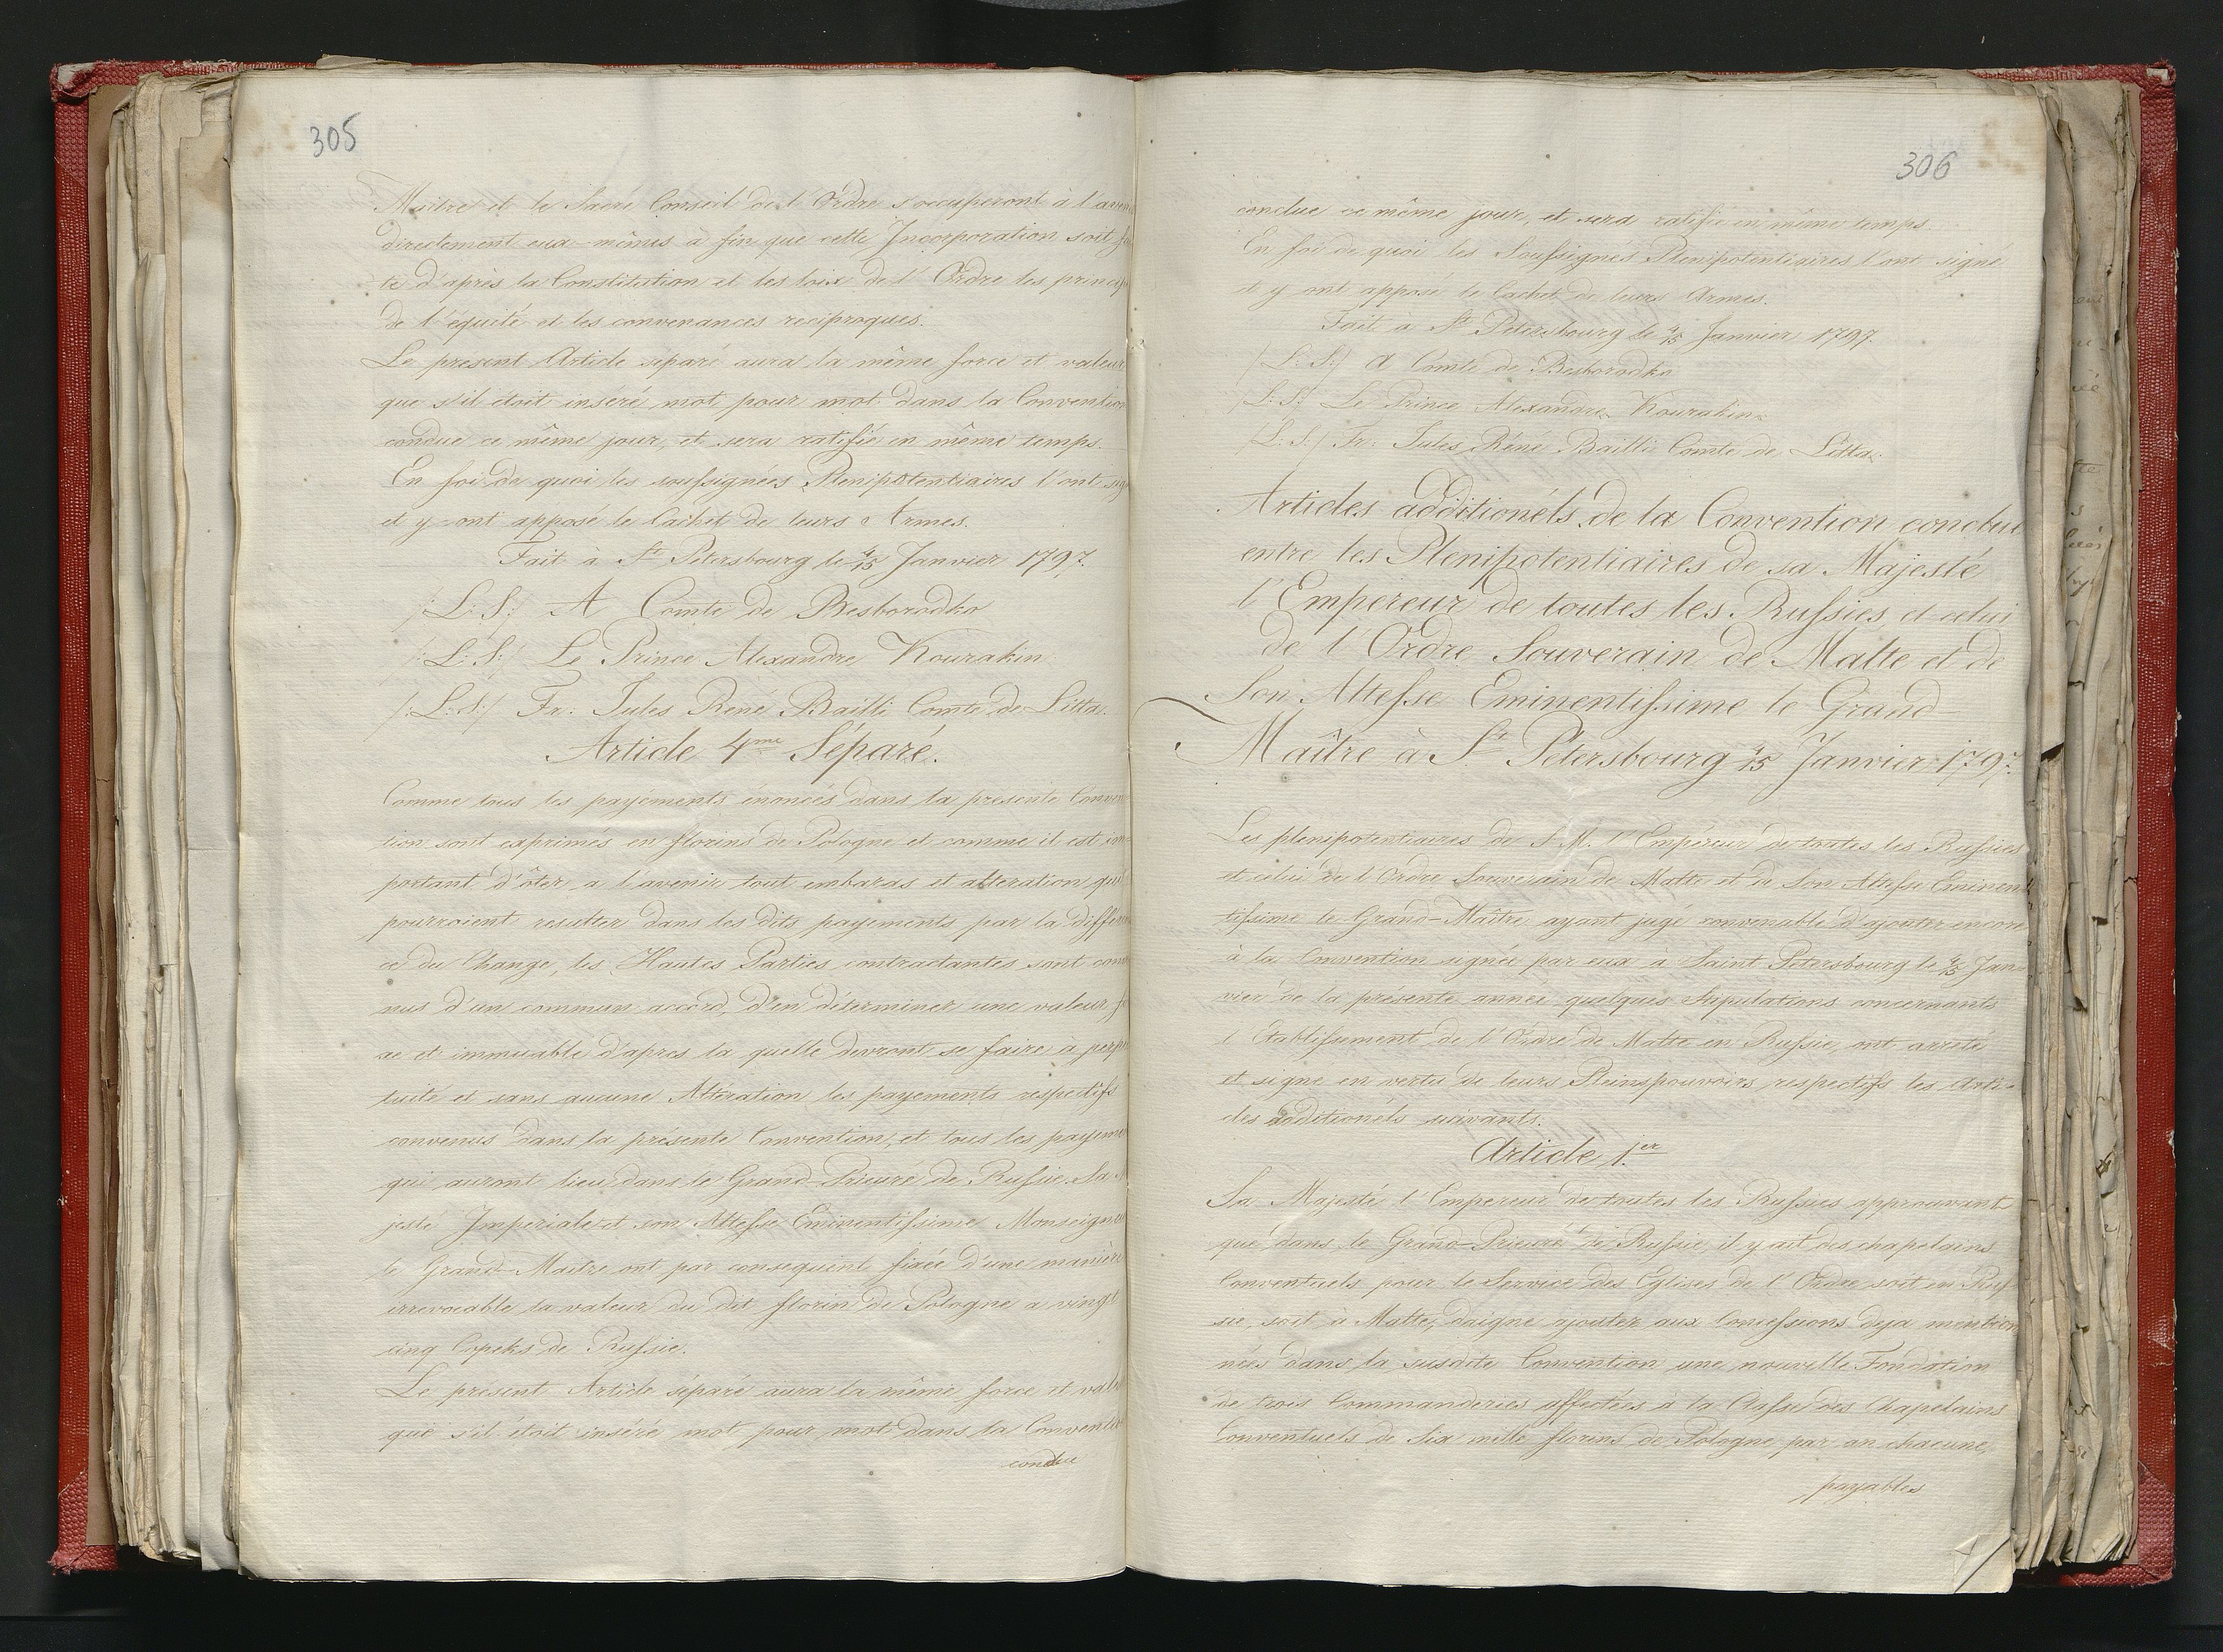 305
Maître et le Sacré Conseil de l'Ordre s'occuperont à l'aven
directement eux-mêmes à fin que cette Incorporation soit
te d'après la Constitution et les loix de l'Ordre les princip
de l'équité et les convenances reciproques.
Le présent Article séparé aura la même force et valeur
que s'il étoit inséré mot pour mot dans la Convention
conclue ce même jour, et sera ratifié en même temps.
En foi de quoi les soussignées Plenipotentiaires l'ont sig
et y ont apposé le Cachet de leurs Armes.
Fait à St Petersbourg le 4/15 Janvier 1797.
/:L:S:/ A Comte de Besborodko
/:L:S:/ Le Prince Alexandre Kourakin
/:L:S:/ Fr: Jules René Bailli Comte de Litta.
Article 4me Séparé.
Comme tous les payements énoncés dans la presente Conven
tion sont exprimés en florins de Pologne et comme il est im
portant d'ôter a l'avenir tout embaras et alteration qui
pourroient resulter dans les dits payements par la differen
ce du Change, les Hautes Parties contractantes sont conve
nus d'un commun accord, d'en déterminer une valeur fi
xe et immuable d'apres la quelle devront se faire à perpé
tuité et sans aucune Altération les payements respectifs
convenus dans la présente Convention, et tous les payeme
qui auront lieu dans le Grand-Prieuré de Russie. Sa
jesté Imperiale et son Altesse Eminentissime Monseigneu
le Grand-Maitre ont par consequent fixée d'une manière
irrevocable la valeur du dit florin de Pologne a vingt
cinq Copeks de Russie.
Le présent Article séparé aura la même force et vale
que s'il étoit inséré mot pour mot dans la Conventio
conclue
306
conclue ce même jour, et sera ratifié en même temps
En foi de quoi les Soussignés Plenipotentiaires l'ont signé
et y ont apposé le Cachet de leurs Armes.
Fait à St Petersbourg le 4/15 Janvier 1797.
/L:S:/ A Comte de Besborodko
/L:S:/ Le Prince Alexandre Kourakin
/L:S:/ Fr: Jules Réné Bailli Comte de Litta.
Articles additionéls de la Convention conclue
entre les Plenipotentiaires de sa Majesté
l'Empereur de toutes les Russies et celui
de l'Ordre Souverain de Malte et de
Son Altesse Eminentissime le Grand-
Maître à St Petersbourg 4/15 Janvier 1797.
Les plenipotentiaires de S. M. l'Empéreur de toutes les Russies
et celui de l'Ordre Souverain de Malte et de Son Altesse Eminen
tissime le Grand-Maître ayant jugé convenable d'ajouter encore
à la Convention signée par eux à Saint Petersbourg le 4/15 Jan-
vier de la présente année quelques Stipulations concernants
l'Etablissement de l'Ordre de Malte en Russie, ont arrêté
et signé en vertu de leurs Pleinspouvoirs respectifs les Arti-
cles additionéls suivants.
Article 1.er
Sa Majesté l'Empereur de toutes les Russies approuvant
que dans le Grand-Prieuré de Russie il y ait des chapelains
Conventuels pour le Service des Eglises de l'Ordre soit en Rus
sie, soit à Malte, daigne ajouter aux Concessions deja mention
nées dans la susdite Convention une nouvelle Fondation
de trois Commanderies affectées à la Classe des Chapelains
Conventuels de Six mille florins de Pologne par an chacune,
payables